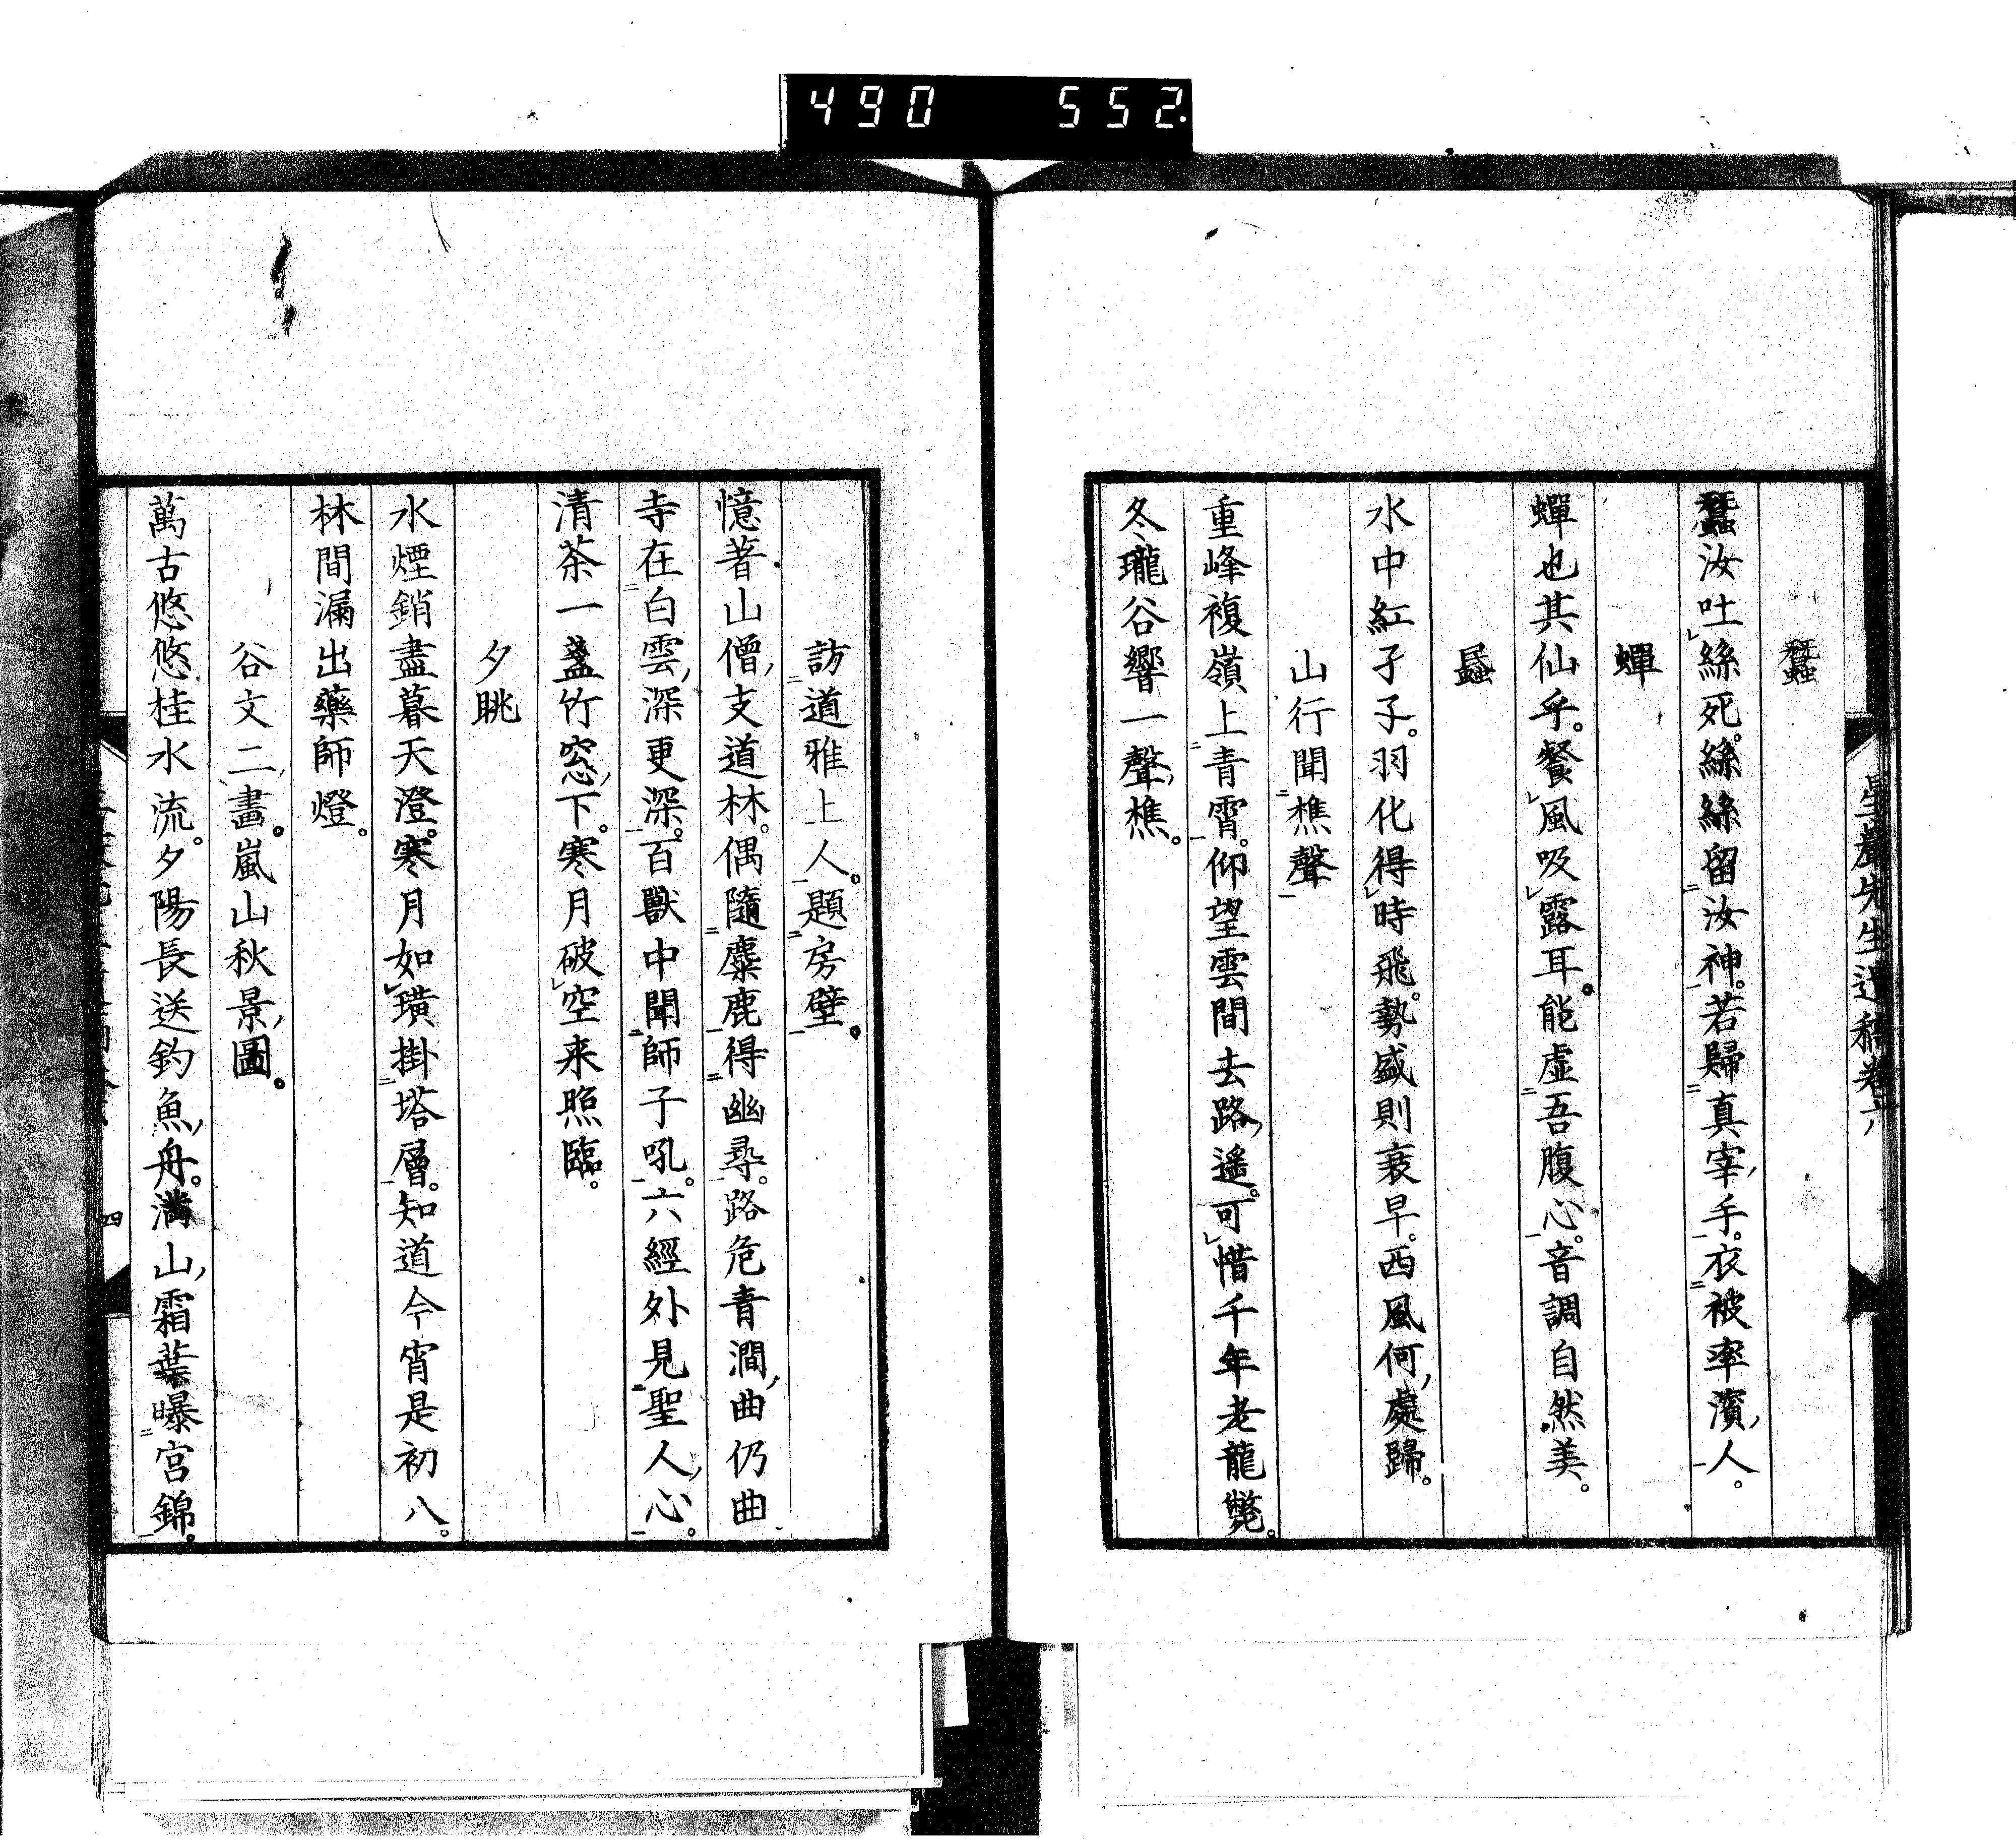 490 552
蠶
蠶汝吐絲死。絲絲留汝神。若歸真宰手。衣被率濱人。
蟬
蟬也其仙乎。餐風吸露耳。能虛吾腹心。音調自然美。
水中紅孑孑。羽化得時飛。勢盛則衰早。西風何處歸。
山行聞樵聲
重峰複嶺上青霄。仰望雲間去路遙。可惜千年老龍斃。
冬瓏谷響一聲樵。
訪道雅上人。題房壁。
憶著山僧支道林。偶隨麋鹿得幽尋。路危青澗曲仍曲
寺在白雲深更深。百獸中聞師子吼。六經外見聖人心。
清茶一盞竹窓下。寒月破空来照臨。
夕眺
水煙銷盡暮天澄。寒月如璜掛塔層。知道今宵是初八。
林間漏出藥師燈。
谷文二畫。嵐山秋景圖。
萬古悠悠桂水流。夕陽長送釣魚舟。滿山霜葉曝宮錦。
四